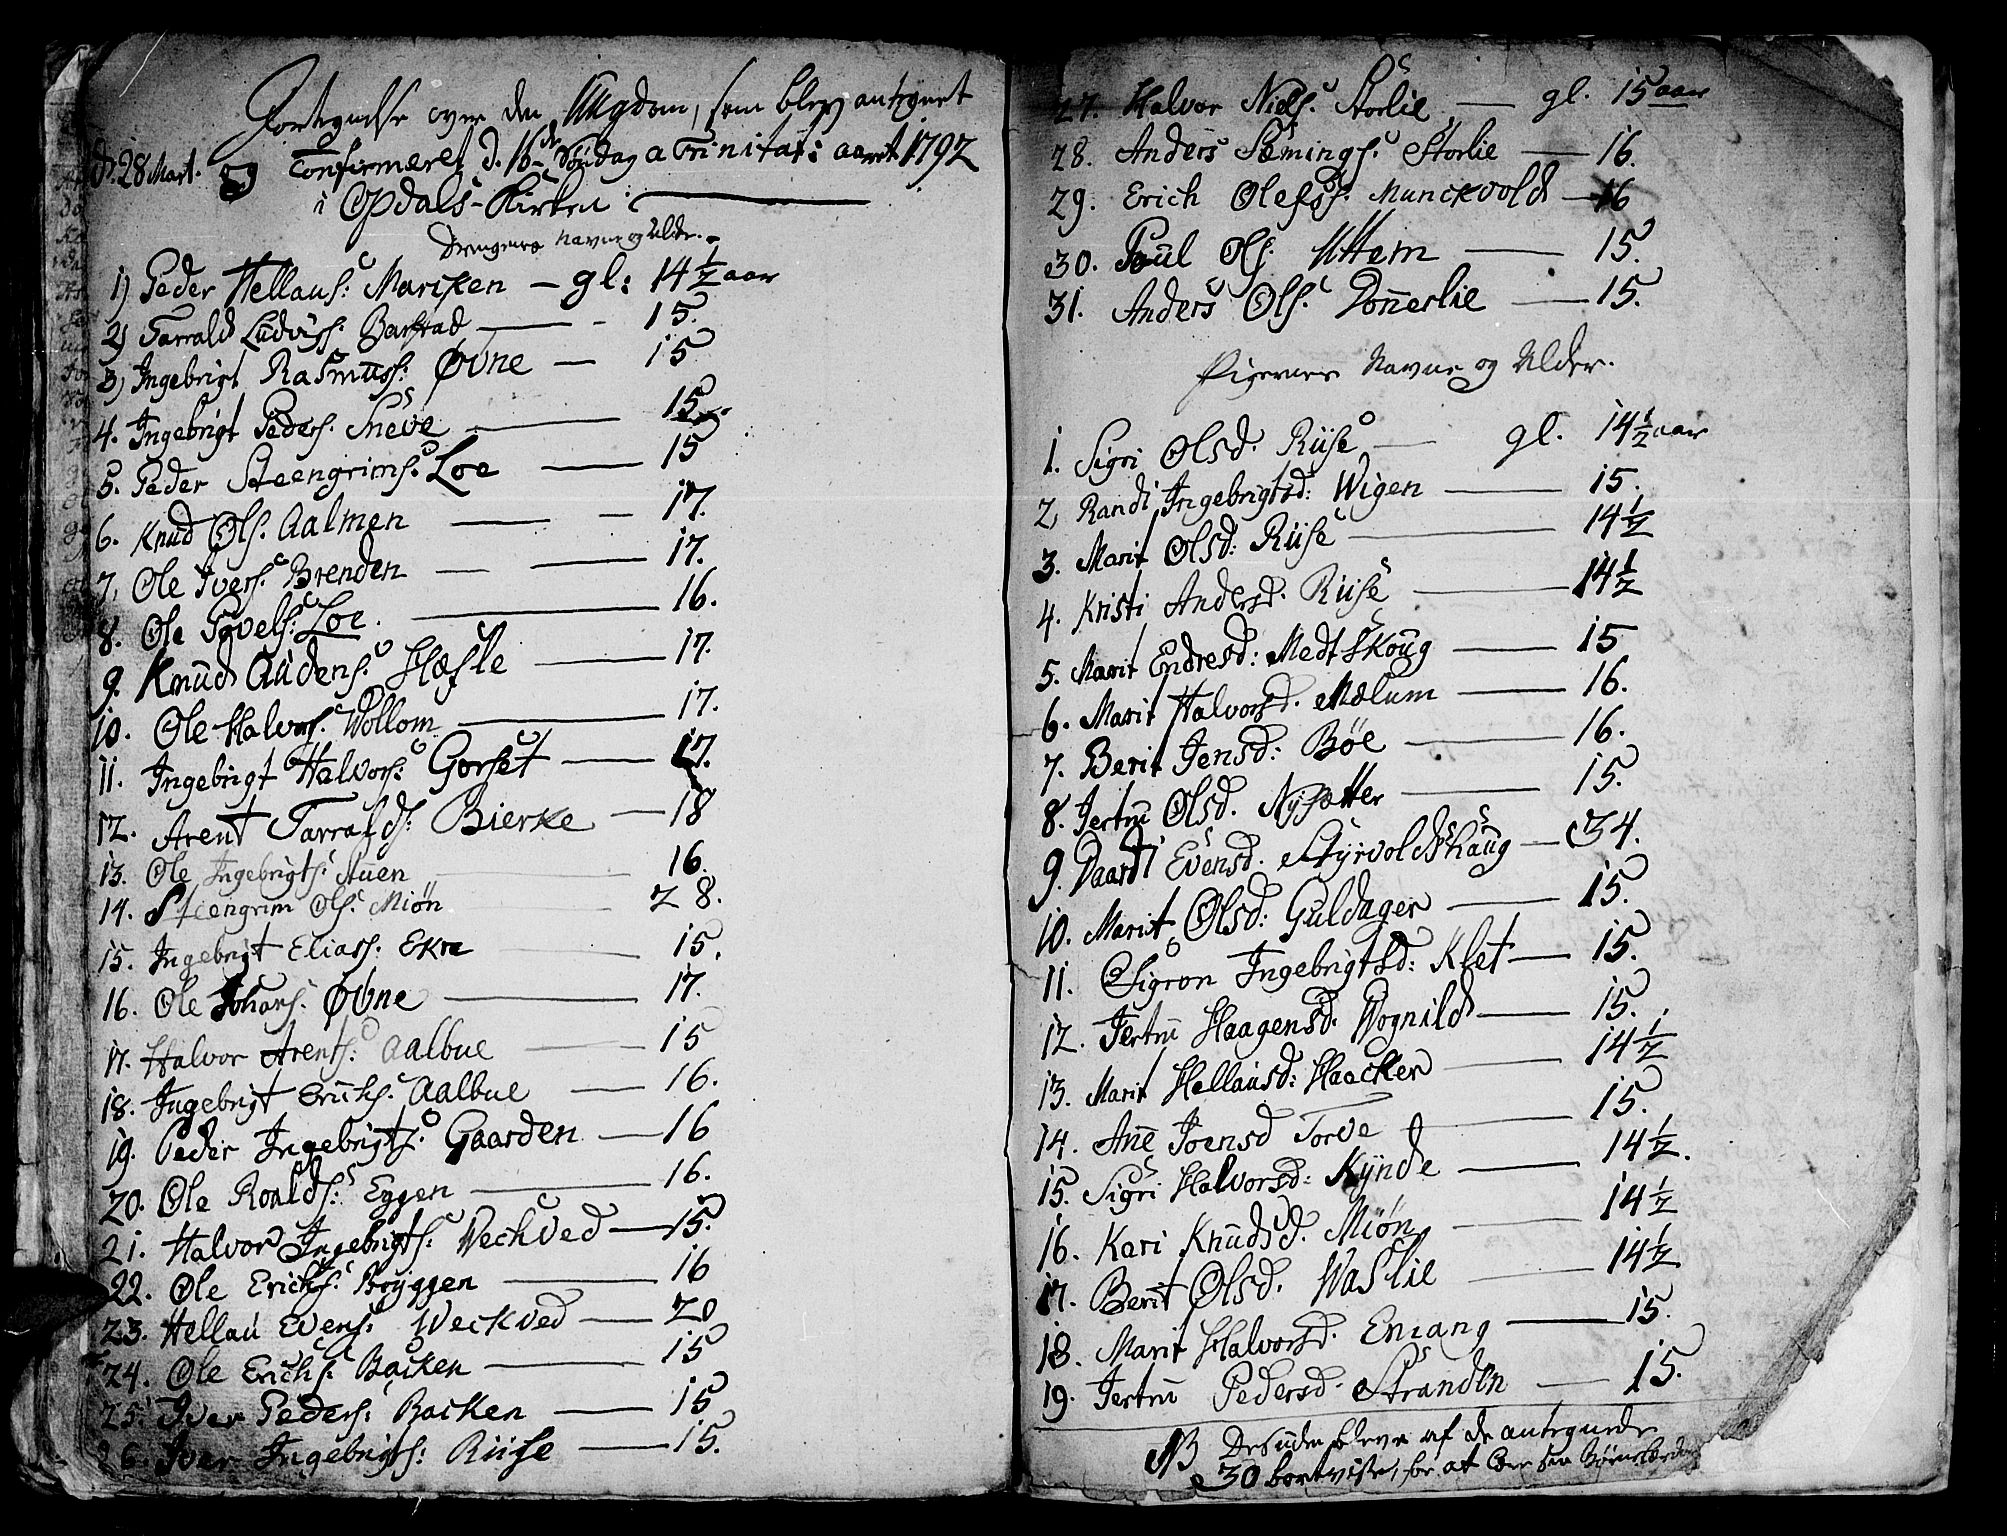 Fortegnelse over den Ungdom, som blev antegnet
d. 28 Mart. og Confirmeret d. 16de Søndag a Trinitatis aaret 1792
i Opdals-Kirken
Drengenes Navne og Alder.
1) Peder Hellaus: Marcken - gl: 14 1/2 aar
2) Tarrald Ludvigs: Barstad 15.
3) Ingebrigt Rasmuss: Øvne 15
4. Ingebrigt Peders. Sneve 15.
5. Peder Steengrims: Loe 15
6. Knud Ols. Aalmen 17.
7. Ole Ivers: Brenden 17.
8. Ole Povels: Loe. 16.
9. Knud Audens: Hæfle 17.
10. Ole Halvors: Vollom 17.
11. Ingebrigt Halvors: Gorset 17.
12. Arent Tarralds: Bierke 18
13. Ole Ingebrigts: Stuen 16.
14. Steengrim Ols: Miøn 28.
15. Ingebrigt Eliass: Ekra 15.
16. Ole Johans: Øvne 17.
17. Halvor Arents: Aalbue 15
18. Ingebrigt Erichs: Aalbue 16.
19. Peder Ingebrigts: Gaarden 16
20. Ole Roalds: Eggen 16.
21. Halvor Ingebrigts: Veckved 15.
22. Ole Erichs: Bryggen 16
23. Hellau Evens: Weckved 20
24. Ole Erichs: Backen 15
25. Iver Peders: Backen 15
26. Iver Ingebrigts: Riise 15.
27. Halvor Niels: Storlie gl. 15 aar
28. Anders Sæmings: Storlie 16.
29. Erich Olefss: Munckvold 16
30. Poul Ols: Uttem 15.
31. Anders Ols: Donnerlie 15.
Pigernes Navne og Alder.
1. Sigri Olsd. Riise gl. 14 1/2 aar
2, Randi Ingebrigtsd: Wigen 15.
3. Marit Olsd: Riise 14 1/2
4. Kristi Andersd. Riise 14 1/2
5. Marit Endresd: Medtskoug 15
6. Marit Halvorsd. Mælum 16.
7. Berit Jensd: Bøe 16.
8. Jertru Olsd. Nysætter 15.
9. Paardi Evensd. Styrvoldshaug 34.
10. Marit Olsd: Guldager 15.
11. Sigron Ingebrigtsd: Klet 15.
12. Jertru Haagensd. Vognild 15.
13. Marit Hellausd: Haacker 14 1/2
14. Ane Joensd Torve 15.
15. Sigri Halvorsd: Kynde 14 1/2.
16. Kari Knudsd. Miøn 14 1/2
17. Berit Olsd. Waslie 14 1/2
18. Marit Halvorsd. Enrang 15.
19. Jertru Pedersd. Stranden 15.
NB Desuden bleve af de antegnede
30 bortviste, for at lære